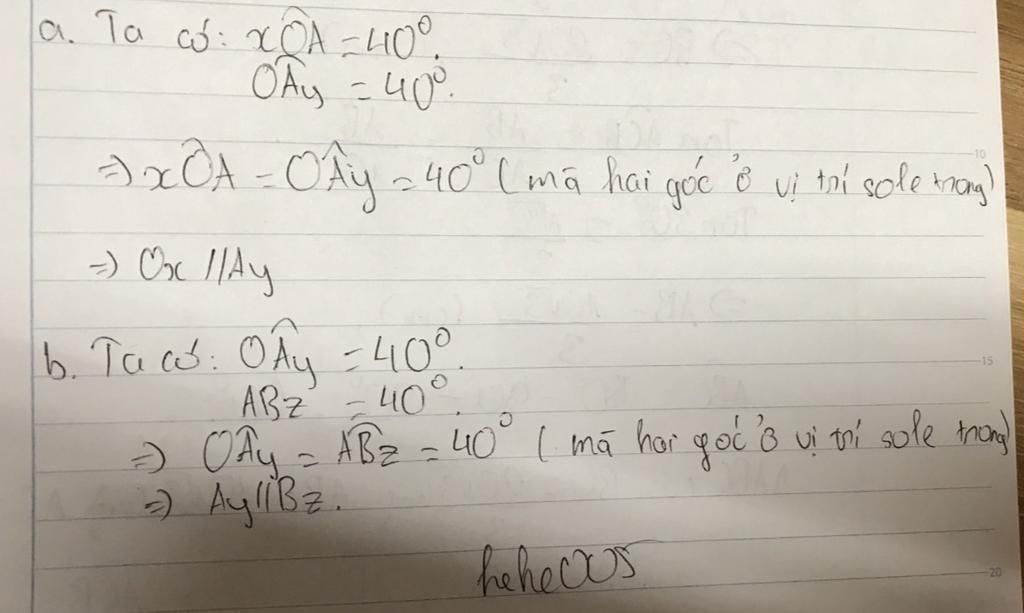 a. Ta có: xÔA = 40⁰.
OÂy = 40⁰.
⇒ xÔA = OÂy = 40⁰ (mà hai góc ở vị trí sole trong)
⇒ Ox // Ay
b. Ta có: OÂy = 40⁰.
ABz = 40⁰.
⇒ OÂy = AB̂z = 40⁰ (mà hai góc ở vị trí sole trong)
⇒ Ay // Bz.
10
15
20